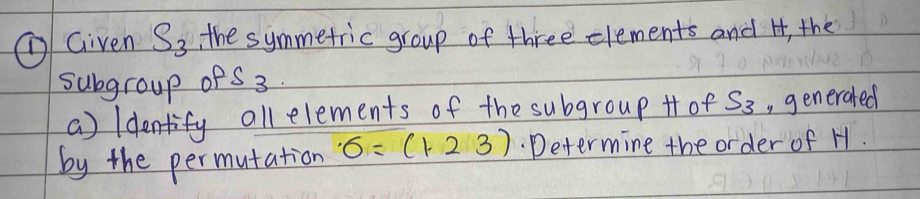 ① Given S3, the symmetric group of three elements and H, the
subgroup of S3.
a) Identify all elements of the subgroup H of S3, generated
by the permutation σ = (1 2 3). Determine the order of H.